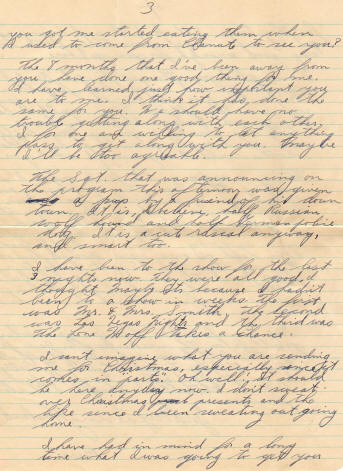 3
you got me started eating them when
I used to come from Chanute to see you?
The 8 months that I've been away from
you have done one good thing for me.
I have learned just how important you
are to me. I think it has done the
same for you. We should have no
trouble getting along with each other,
I for one am willing to let anything
pass to get along with you. Maybe
I'll be too agreable.
The Sgt. that was announcing on
the program this afternoon was given
a pup by a friend of his down
town. It is, I believe, half Russian
wolf hound and half German police
dog. It is a cute rascal anyway,
and smart too.
I have been to the show for the last
3 nights now. They were all good I
thought. Maybe its because I hadn't
been to a show in weeks. The first
was Mr. & Mrs. Smith, the second
was Las Vegas Nights and the third was
the Lone Wolf Takes a Chance.
I can't imagine what you are sending
me for Christmas, especially since it
comes in parts. Oh well, it should
be here anyday now. I don't sweat
over Christmas presents and the
like since I been sweating out going
home.
I have had in mind for a long
time what I was going to get your